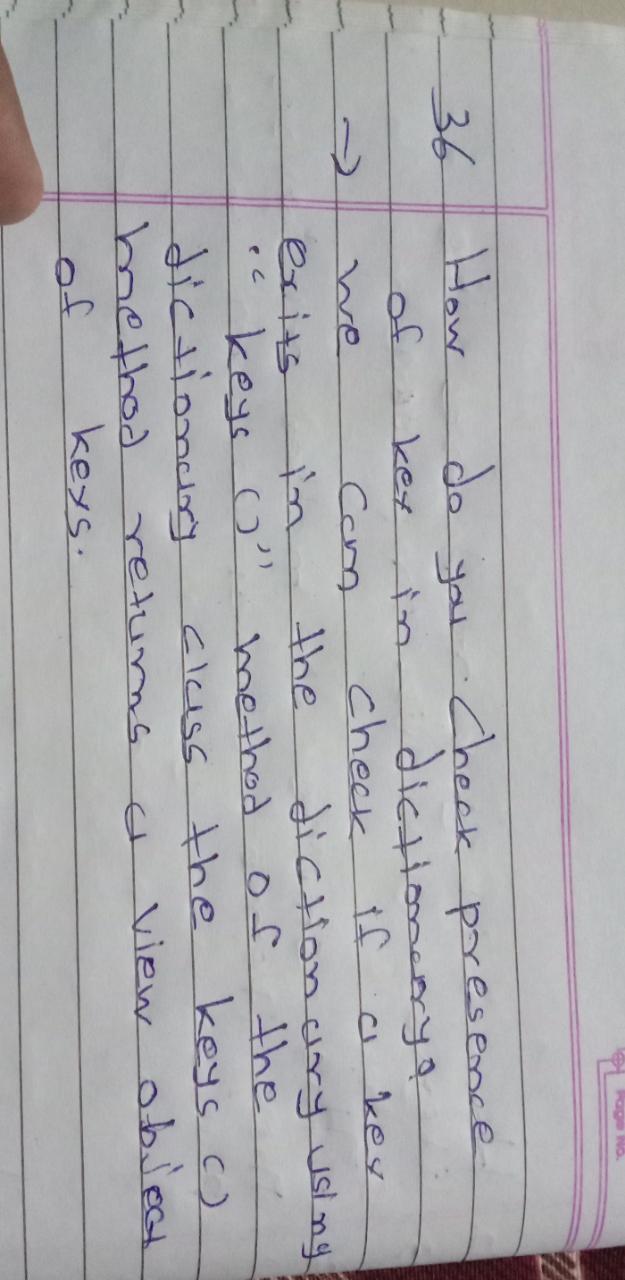 Page No.
36 How do you check presence
of key in dictionary?
→ we can check if a key
exits in the dictionary using
"keys ()" method of the
dictionary class the keys ()
method returns a view object
of keys.